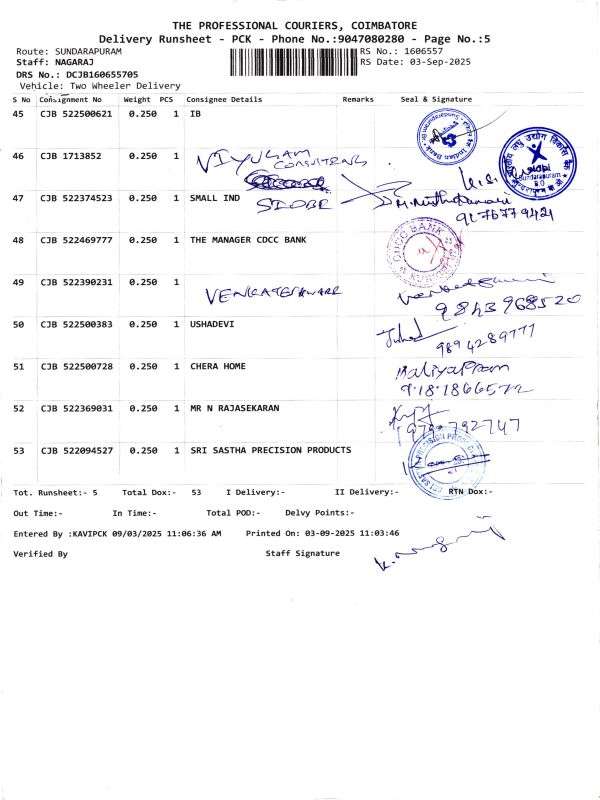 THE PROFESSIONAL COURIERS, COIMBATORE
Delivery Runsheet - PCK - Phone No.:9047080280 - Page No.:5
Route: SUNDARAPURAM RS No.: 1606557
Staff: NAGARAJ RS Date: 03-Sep-2025
DRS No.: DCJB160655705
Vehicle: Two Wheeler Delivery
S No Consignment No Weight PCS Consignee Details Remarks Seal & Signature
45 CJB 522500621 0.250 1 IB
46 CJB 1713852 0.250 1 VIYUGAM
CONSULTING
47 CJB 522374523 0.250 1 SMALL IND
SIDBI
sidbi
Sundarapuram
48 CJB 522469777 0.250 1 THE MANAGER CDCC BANK
CDCC BANK
49 CJB 522390231 0.250 1
VENKATESHWARE
9843968520
50 CJB 522500383 0.250 1 USHADEVI
9894289777
51 CJB 522500728 0.250 1 CHERA HOME
52 CJB 522369031 0.250 1 MR N RAJASEKARAN
9790792747
53 CJB 522094527 0.250 1 SRI SASTHA PRECISION PRODUCTS
Tot. Runsheet:- 5 Total Dox:- 53 I Delivery:- II Delivery:- RTN Dox:-
Out Time:- In Time:- Total POD:- Delvy Points:-
Entered By :KAVIPCK 09/03/2025 11:06:36 AM Printed On: 03-09-2025 11:03:46
Verified By Staff Signature